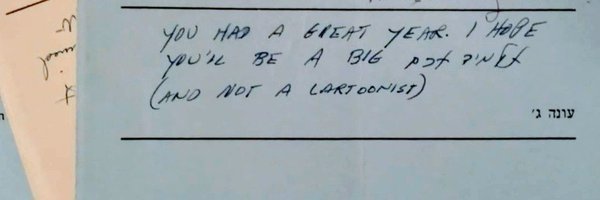 YOU HAD A GREAT YEAR. I HOPE
YOU'LL BE A BIG תלמיד חכם
(AND NOT A CARTOONIST)
עונה ג׳